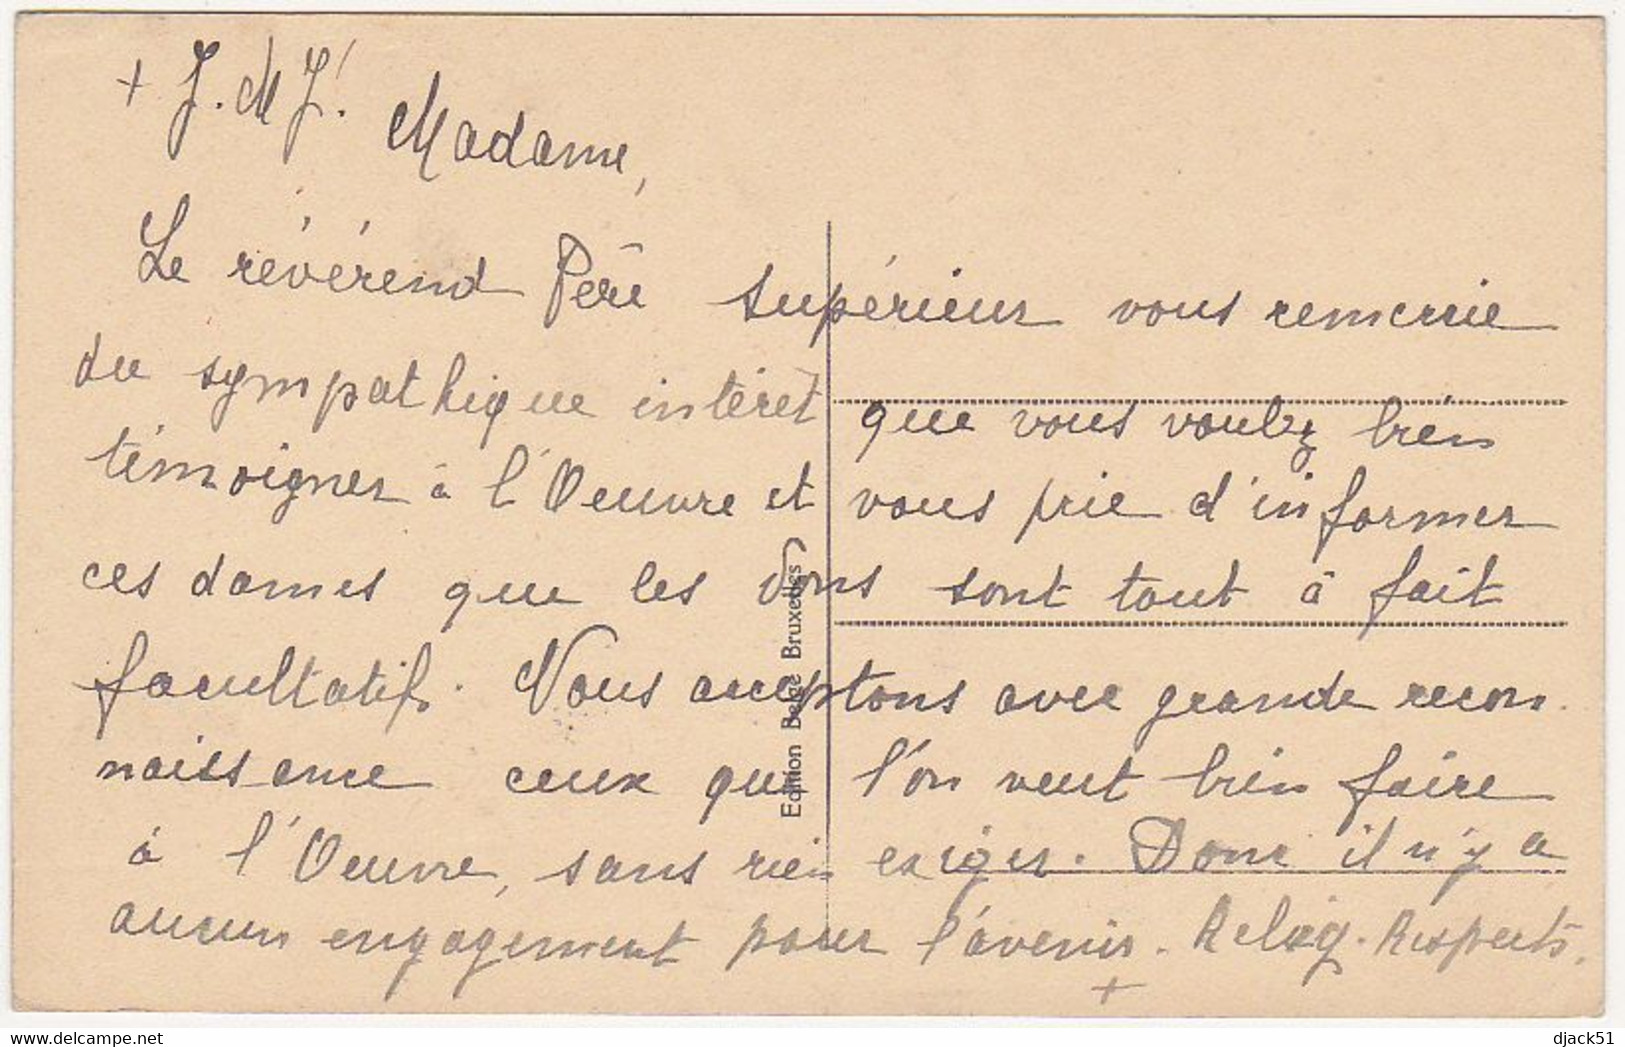 + J.M.J!
Madame,
Le révérend Père supérieur vous remercie
du sympathique intérêt que vous voulez bien
témoigner à l'Oeuvre et vous prie d'informer
ces dames que les dons sont tout à fait
facultatifs. Nous acceptons avec grande recon
naissance ceux que l'on veut bien faire
à l'Oeuvre, sans rien exiger. Donc il n'y a
aucun engagement pour l'avenir. Relig. Respects.
+
Edition Belge Bruxelles
djack51